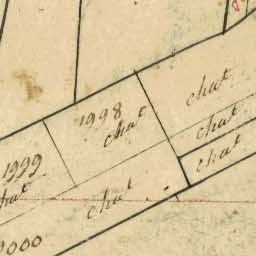 chat.
1998
chat
chat.
chat
1999
chat
chat
2000